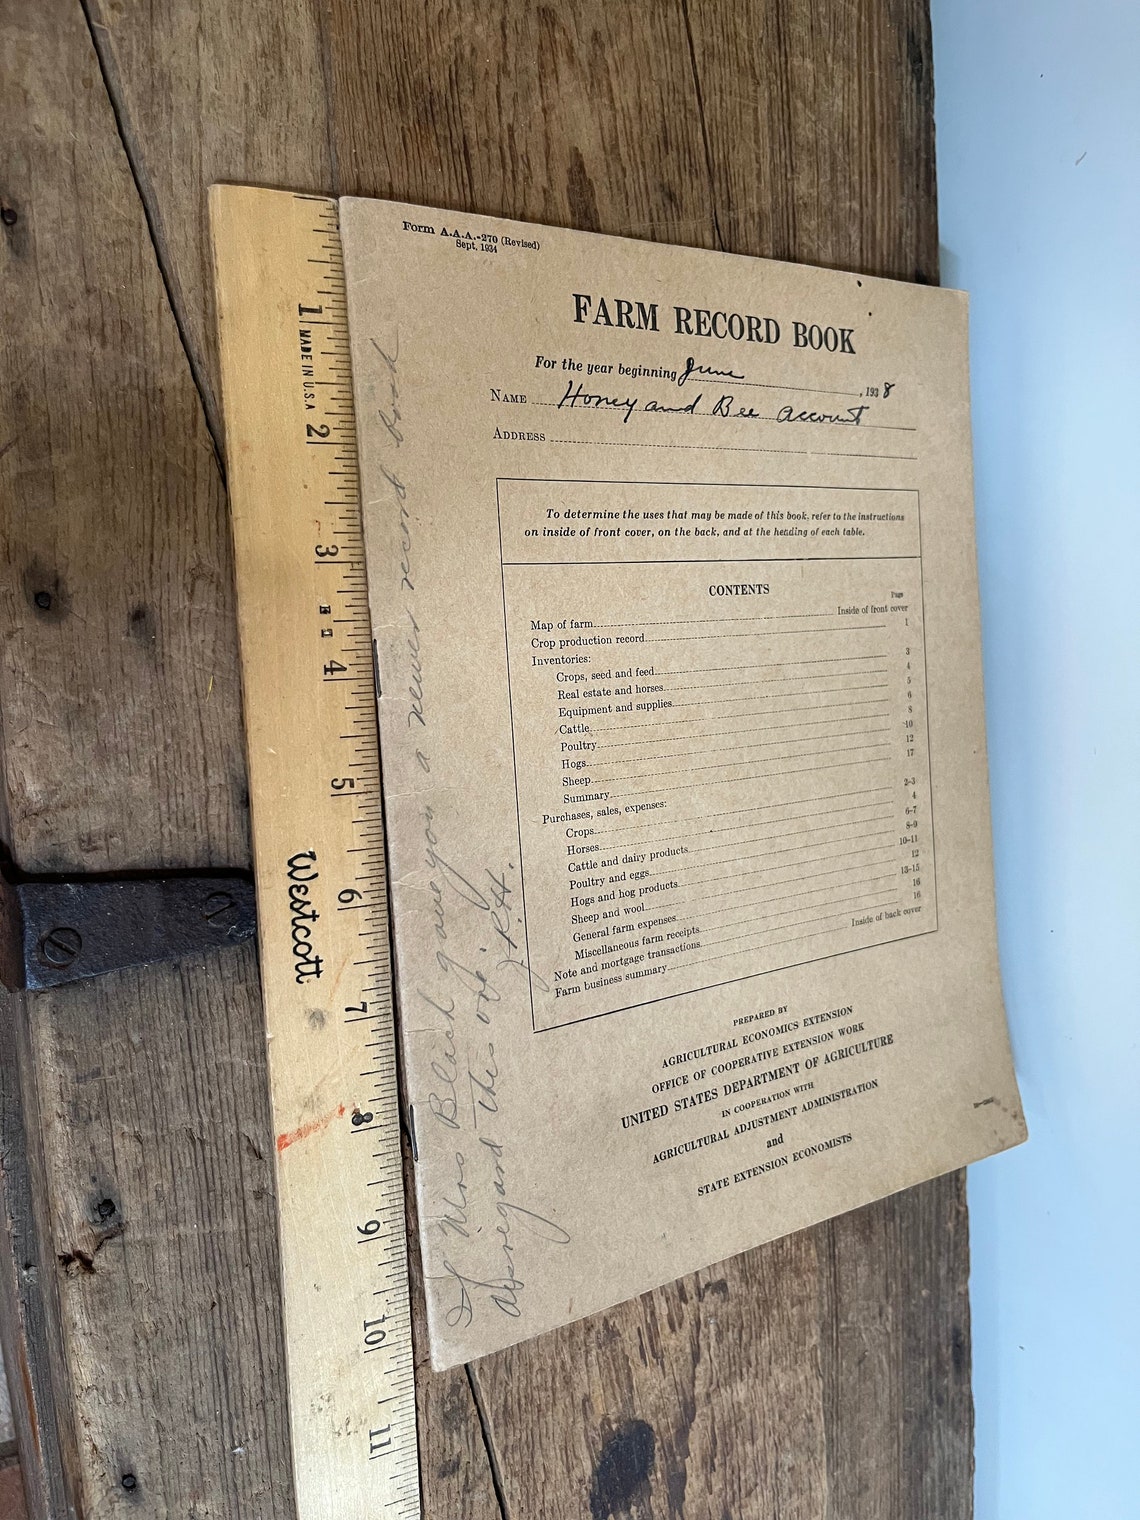 Form A.A.A.-270 (Revised)
Sept. 1934
FARM RECORD BOOK
For the year beginning June, 1938
NAME Honey and Bee account
ADDRESS
To determine the uses that may be made of this book, refer to the instructions
on inside of front cover, on the back, and at the heading of each table.
CONTENTS
Page
Map of farm Inside of front cover
Crop production record 1
Inventories:
Crops, seed and feed 3
Real estate and horses 4
Equipment and supplies 5
Cattle 6
Poultry 8
Hogs 10
Sheep 12
Summary 17
Purchases, sales, expenses:
Crops 2-3
Horses 4
Cattle and dairy products 6-7
Poultry and eggs 8-9
Hogs and hog products 10-11
Sheep and wool 12
General farm expenses 13-15
Miscellaneous farm receipts 16
Note and mortgage transactions 16
Farm business summary Inside of back cover
PREPARED BY
AGRICULTURAL ECONOMICS EXTENSION
OFFICE OF COOPERATIVE EXTENSION WORK
UNITED STATES DEPARTMENT OF AGRICULTURE
IN COOPERATION WITH
AGRICULTURAL ADJUSTMENT ADMINISTRATION
and
STATE EXTENSION ECONOMISTS
If Mrs gave you a newer record book
disregard this one.
R.H.
1
MADE IN U.S.A
2
3
4
5
6
Westcott
7
8
9
10
11